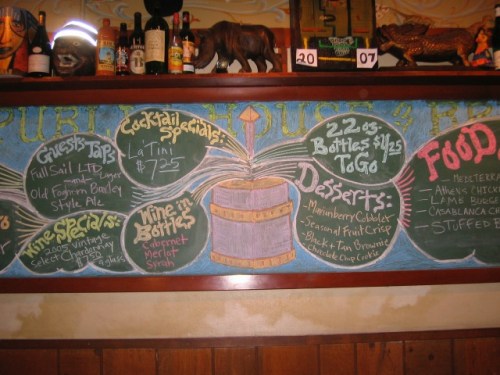 20 07
PUBLIC HOUSE & RE
Guests Taps
Full Sail LTD
Lager
and
Old Foghorn Barley
Style Ale
Cocktail
Specials:
La'Tini
$7.25
22 oz.
Bottles $4.25
To Go
Desserts:
Marionberry Cobbler
Seasonal Fruit Crisp
Black + Tan Brownie
Chocolate Chip Cookie
FOOD
- MEDITERRA
- ATHENS CHICK
- LAMB BURG
- CASABLANCA C
- STUFFED
Wine Specials:
2005 Vintage
Select Chardonnay
$7.50 a glass
Wine in
Bottles
Cabernet
Merlot
Syrah